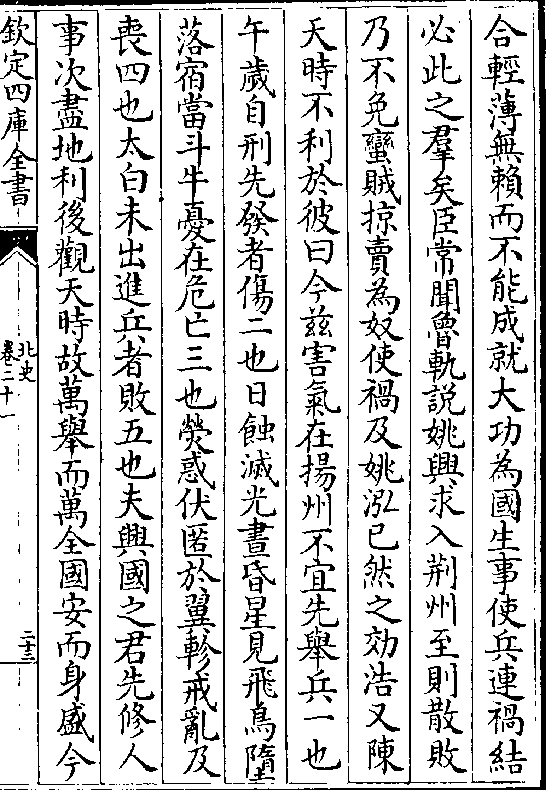 合輕薄無賴而不能成就大功為國生事使兵連禍結
必此之羣矣臣常聞魯軌說姚興求入荆州至則散敗
乃不免蠻賊掠賣為奴使禍及姚泓已然之効浩又陳
天時不利於彼曰今兹害氣在揚州不宜先舉兵一也
午歲自刑先發者傷二也日蝕滅光晝昏星見飛鳥墮
落宿當斗牛憂在危亡三也熒惑伏匿於翼軫戒亂及
喪四也太白未出進兵者敗五也夫興國之君先修人
事次盡地利後觀天時故萬舉而萬全國安而身盛今
欽定四庫全書
北史
卷二十一
二十三